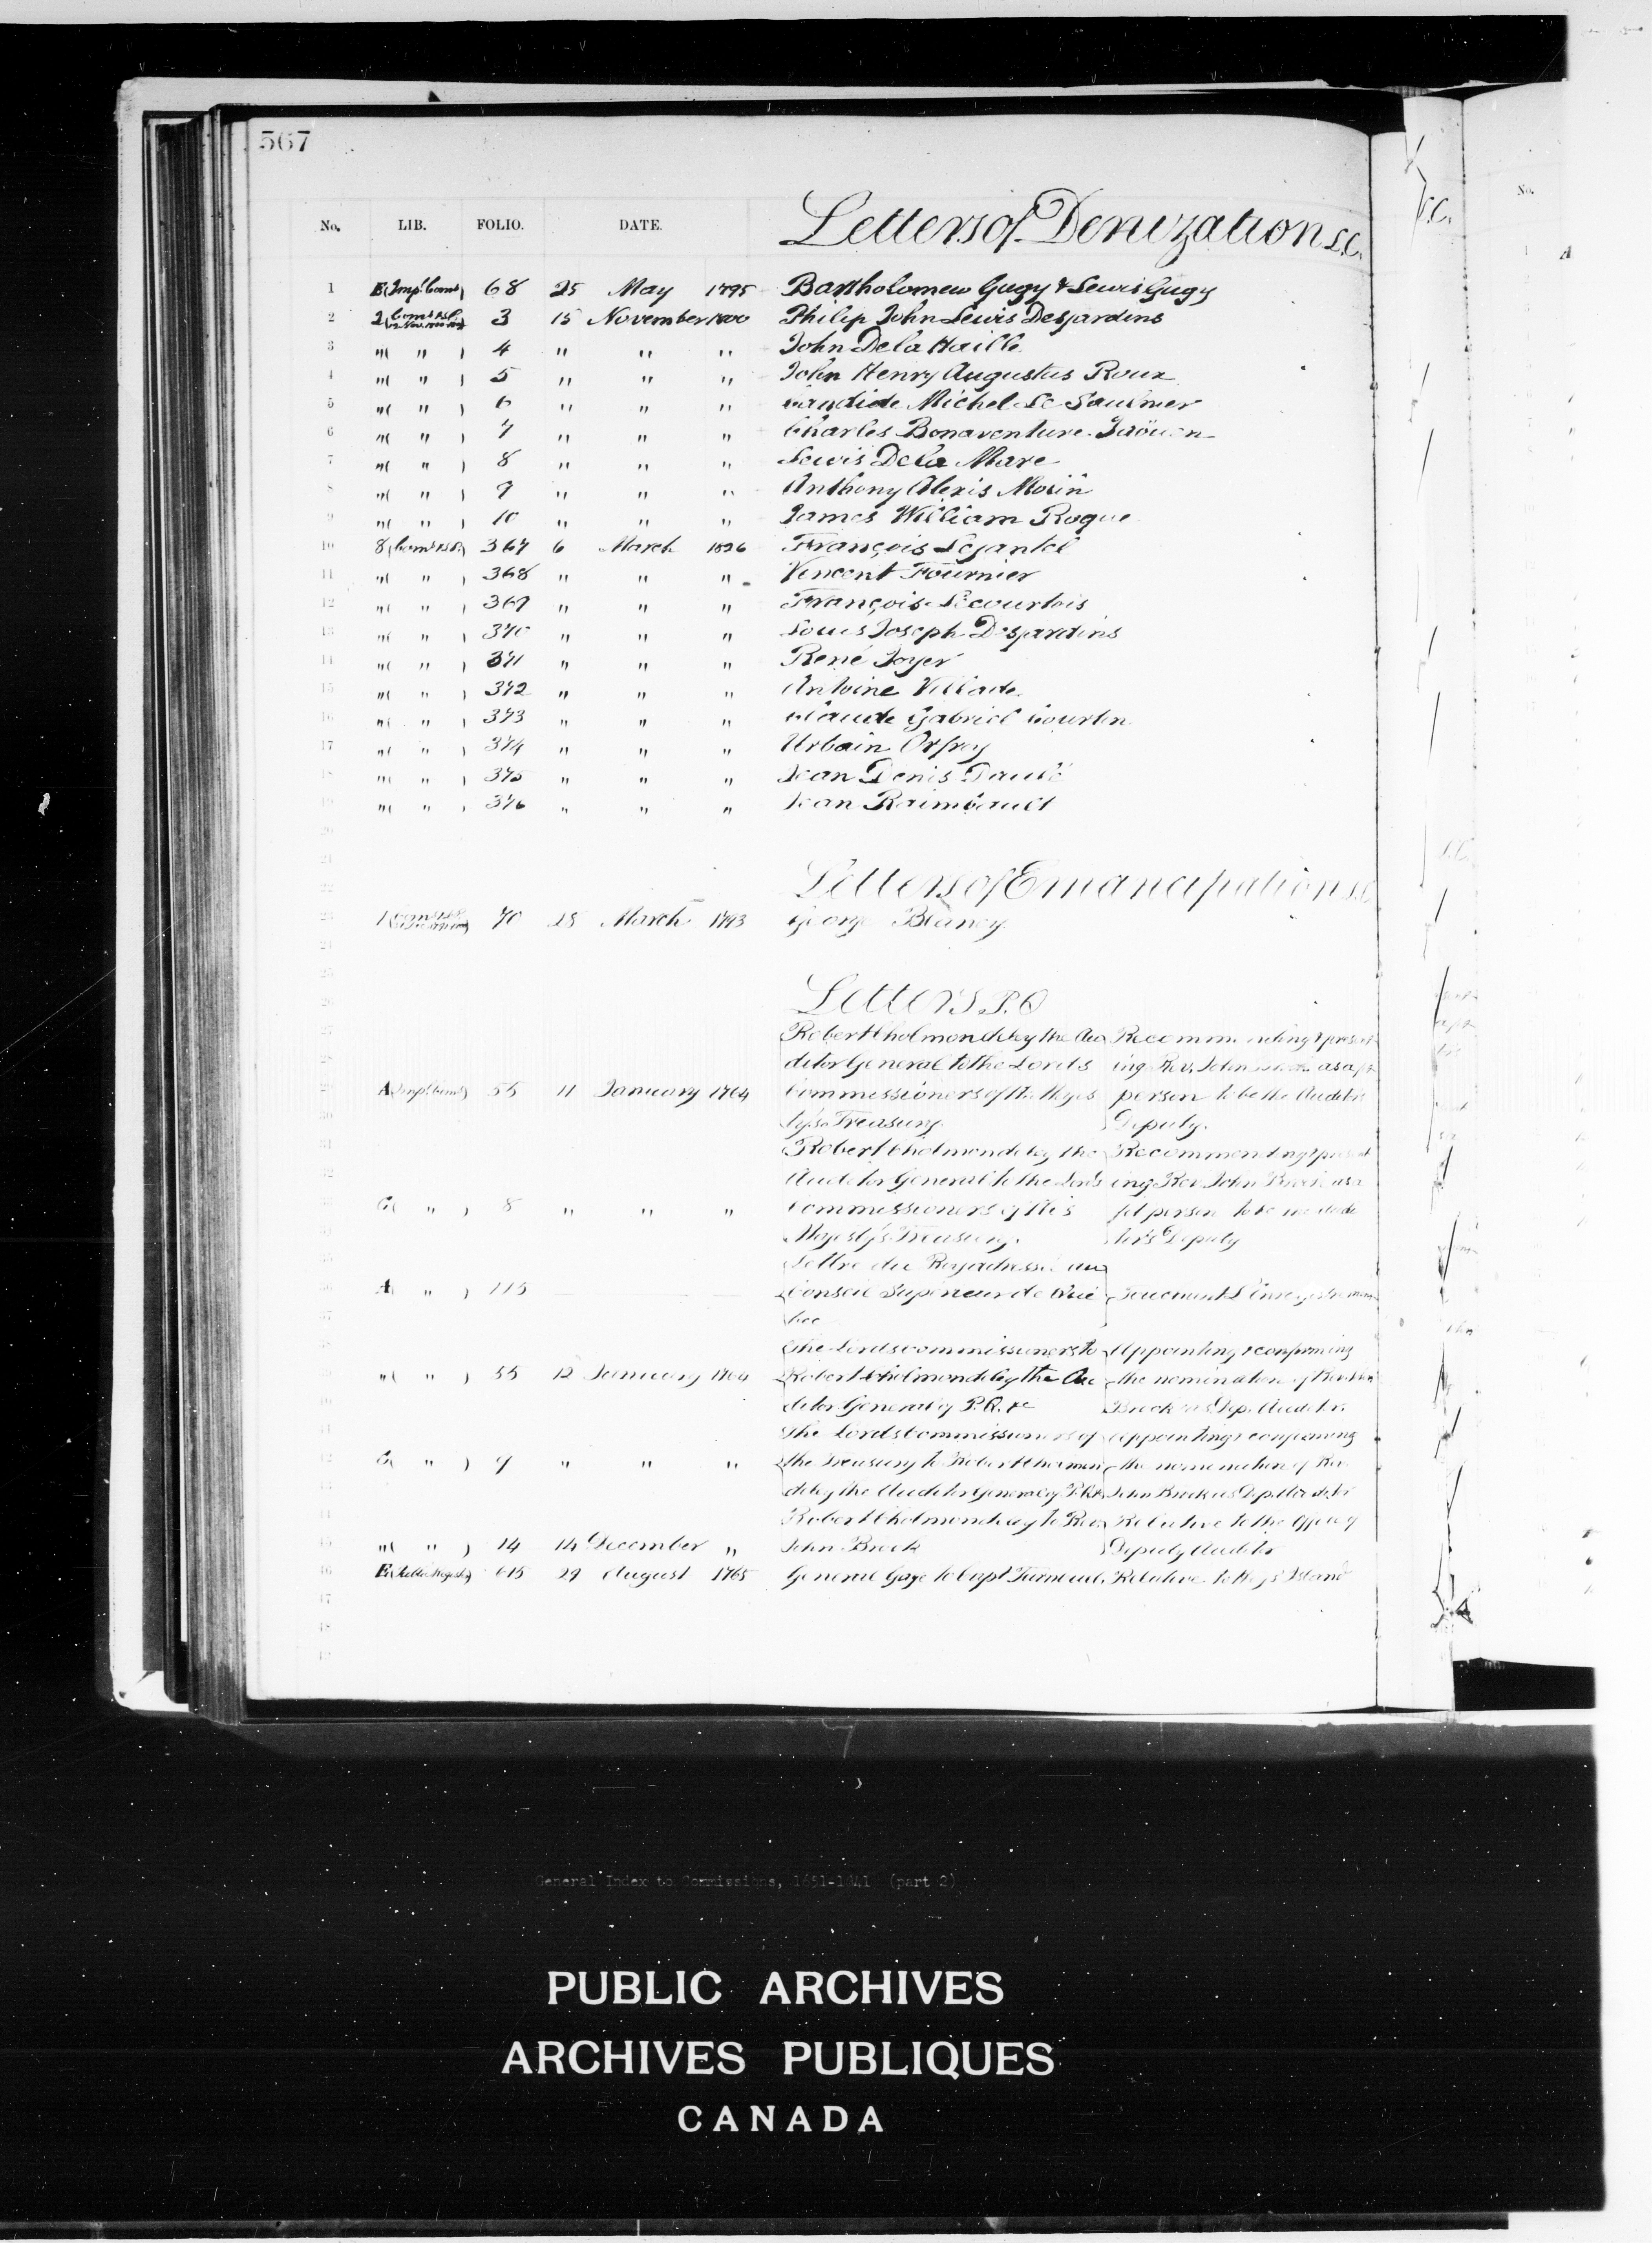 567
No. LIB. FOLIO. DATE. Letters of Denization L.C.
1 E (Imp! Coms) 68 25 May 1795 Bartholomew Gugy & Lewis Gugy
2 2 3 15 November 1800 Philip John Lewis Desjardins
3 "( " ) 4 " " " John De la Haille
4 "( " ) 5 " " " John Henry Augustus Roux
5 "( " ) 6 " " " Candide Michel Le Saulnier
6 "( " ) 7 " " " Charles Bonaventure Jaöuen
7 "( " ) 8 " " " Lewis De la Mare
8 "( " ) 9 " " " Anthony Alexis Morin
9 "( " ) 10 " " " James William Roque
10 8 367 6 March 1826 François Lejantel
11 "( " ) 368 " " " Vincent Fournier
12 "( " ) 369 " " " François Lecourtois
13 "( " ) 370 " " " Louis Joseph Desjardins
14 "( " ) 371 " " " René Joyer
15 "( " ) 372 " " " Antoine Villade
16 "( " ) 373 " " " Claude Gabriel Courtin
17 "( " ) 374 " " " Urbain Orfroy
18 "( " ) 375 " " " Jean Denis Daulé
19 "( " ) 376 " " " Jean Raimbault
20
21
22 Letters of Emancipation L.C.
23 1 70 March 1793 George Blaney
24
25
26 Letters P.Q
27 Robert Cholmondeley the Au Recommending & present
28 ditor General to the Lords ing Rev. John as a fit
29 A (Imp! Coms) 55 11 January 1764 Commissioners of His Majes person to be the Auditors
30 ty's Treasury. Deputy.
31 Robert Cholmondeley the Recommending & present
32 Auditor General to the Lords ing Rev. John as a
33 C( " ) 8 " " " Commissioners of His fit person to be
34 Majesty's Treasury. tor's Deputy
35 Lettre du Roy adressé au
36 A( " ) 115 Conseil Superieur de Qué
37 bec
38 The Lords Commissioners to Appointing & confirming
39 "( " ) 55 12 January 1764 Robert Cholmondeley the Au the nomination of
40 ditor General of P.Q. &c Brook as Dep. Auditor.
41 The Lords Commissioners of Appointing & confirming
42 C( " ) 9 " " " the Treasury to Robert Cholmon the nomination of Rev
43 deley the Auditor General of John Brook as
44 Robert Cholmondeley to Rev. Relative to the Office of
45 "( " ) 14 14 December " John Brook Deputy Auditor
46 E 615 29 August 1765 General Gage to Capt Relative to Island
47
48
49
No.
1 A
General Index to Commissions, 1651-1841 (part 2)
PUBLIC ARCHIVES
ARCHIVES PUBLIQUES
CANADA